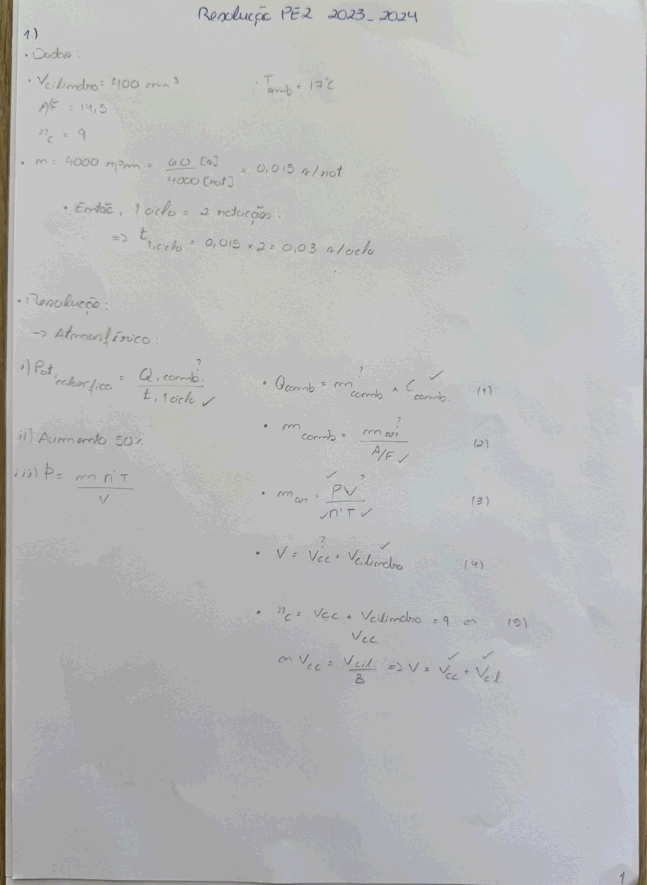 Resolução PE2 2023_2024
1)
• Dados:
• Vcilindro = 400 cm³
Tamb = 17°C
A/F = 14,5
rc = 9
• n = 4000 rpm = 60 [s] / 4000 [rot] = 0,015 s/rot
• Então, 1 ciclo = 2 rotações:
=> t1 ciclo = 0,015 × 2 = 0,03 s/ciclo
• Resolução:
-> Atmosférico:
i) Pot = Q, comb. ? / t, 1 ciclo ✓
• Qcomb = m comb ? × C comb ✓ (1)
• mcomb = m ar ? / A/F ✓ (2)
ii) Aumento 50%
iii) P = m r' T / V
• mar = ✓ P V ? / ✓ r' T ✓ (3)
• V = Vcc ? + Vcilindro ✓ (4)
• rc = Vcc + Vcilindro / Vcc = 9 (5)
Vcc = Vcil / 8 => V = Vcc ✓ + Vcil ✓
1